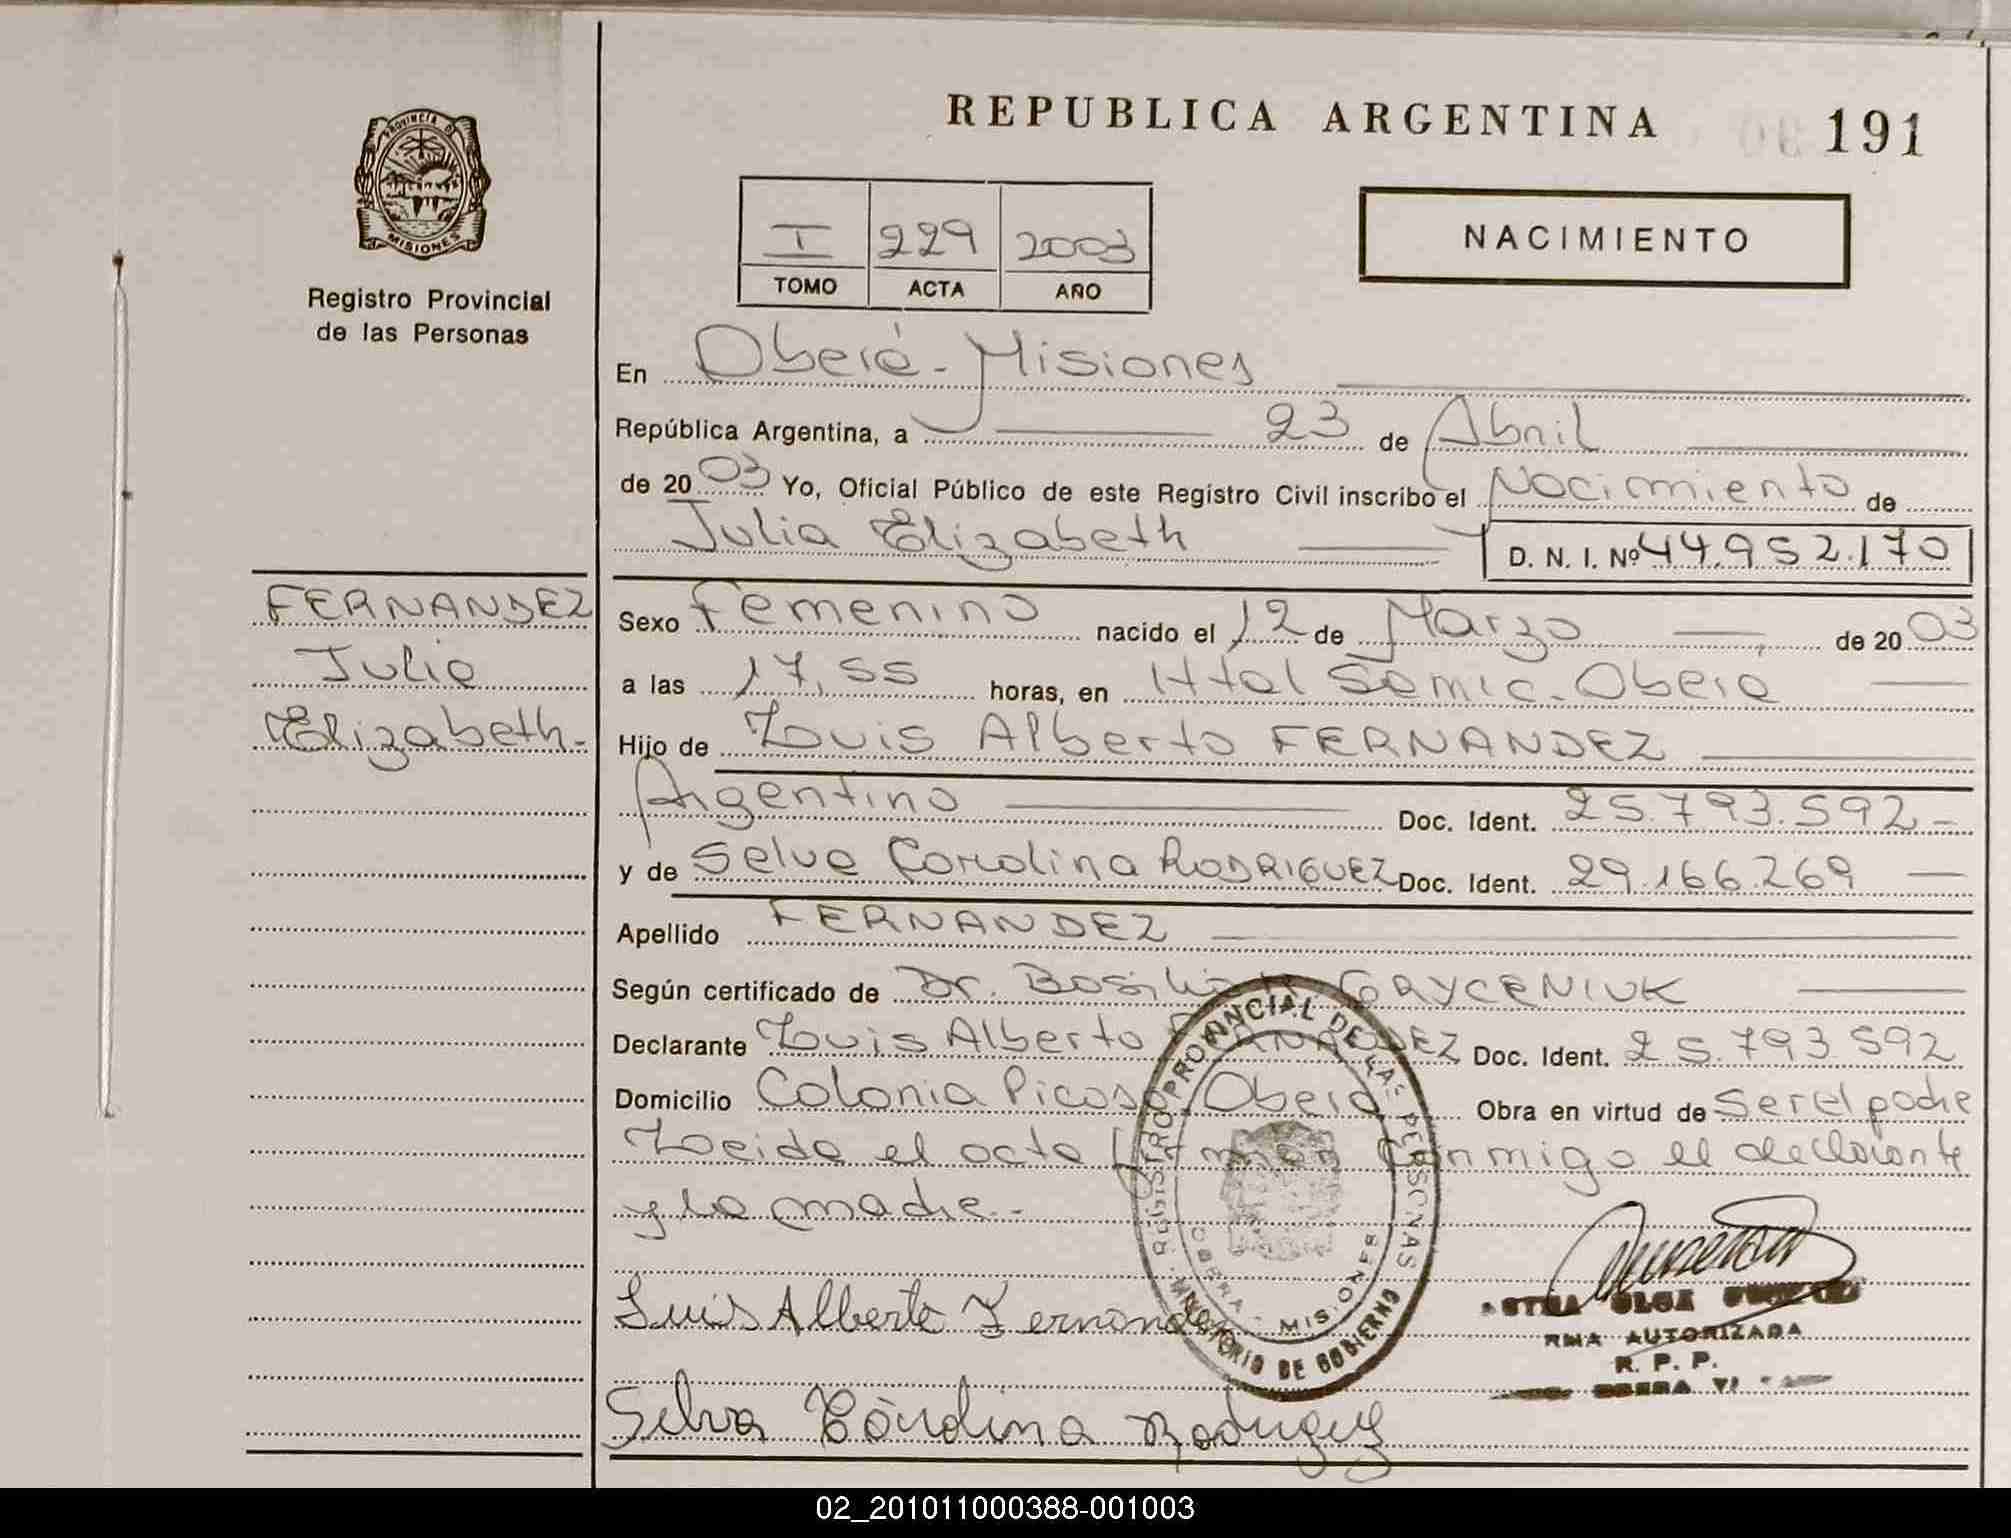 REPUBLICA ARGENTINA 191
PROVINCIA DE
MISIONES
Registro Provincial
de las Personas
I 229 2003
TOMO ACTA AÑO
NACIMIENTO
En Oberá - Misiones
República Argentina, a 23 de Abril
de 2003 Yo, Oficial Público de este Registro Civil inscribo el Nacimiento de
Julia Elizabeth D. N. I. Nº 44.952.170
FERNANDEZ
Julia
Elizabeth.-
Sexo Femenino nacido el 12 de Marzo de 2003
a las 17,55 horas, en Htal Samic - Oberá
Hijo de Luis Alberto FERNANDEZ
Argentino Doc. Ident. 25.793.592 -
y de Selva Carolina RODRIGUEZ Doc. Ident. 29.166.269
Apellido FERNANDEZ
Según certificado de Dr. Basilio H GRYCENIUK
Declarante Luis Alberto FERNANDEZ Doc. Ident. 25.793.592
Domicilio Colonia Picada, Oberá Obra en virtud de ser el padre
Leida el acta firman conmigo el declarante
y la madre.-
Luis Alberto Fernandez
Selva Carolina Rodriguez
REGISTRO PROVINCIAL DE LAS PERSONAS
MINISTERIO DE GOBIERNO
OBERA - MISIONES
OLGA
AUTORIZADA
R. P. P.
OBERA
02_201011000388-001003